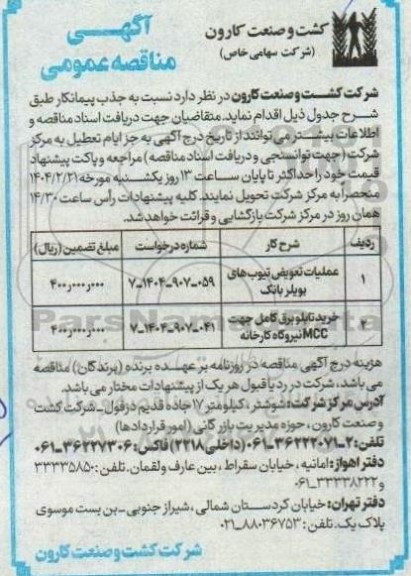 آگهی
مناقصه عمومی
کشت و صنعت کارون
(شرکت سهامی خاص)
شرکت کشت و صنعت کارون در نظر دارد نسبت به جذب پیمانکار طبق
شرح جدول ذیل اقدام نماید. متقاضیان جهت دریافت اسناد مناقصه و
اطلاعات بیشتر می‌توانند از تاریخ درج آگهی به جز ایام تعطیل به مرکز
شرکت (جهت توانسنجی و دریافت اسناد مناقصه) مراجعه و پاکت پیشنهاد
قیمت خود را حداکثر تا پایان ساعت ۱۳ روز یکشنبه مورخه ۱۴۰۴/۲/۲۱
منحصرا به مرکز شرکت تحویل نمایند. کلیه پیشنهادات رأس ساعت ۱۴/۳۰
همان روز در مرکز شرکت بازگشایی و قرائت خواهد شد.
ردیف شرح کار شماره درخواست مبلغ تضمین (ریال)
۱ عملیات تعویض تیوب‌های بویلر بانک ۷-۱۴۰۴-۹۰۷-۰۵۹ ۴۰۰٫۰۰۰٫۰۰۰
۲ خرید تابلو برق کامل جهت MCC نیروگاه کارخانه ۷-۱۴۰۴-۹۰۷-۰۴۱ ۴۰۰٫۰۰۰٫۰۰۰
ParsNamadData
هزینه درج آگهی مناقصه در روزنامه بر عهده برنده (برندگان) مناقصه
می‌باشد، شرکت در رد یا قبول هر یک از پیشنهادات مختار می‌باشد.
آدرس مرکز شرکت: شوشتر، کیلومتر ۱۷ جاده قدیم دزفول - شرکت کشت
و صنعت کارون، حوزه مدیریت بازرگانی (امور قراردادها)
تلفن: ۲-۳۶۲۲۲۰۷۱-۰۶۱ (داخلی ۲۲۱۸) فاکس: ۳۶۲۲۷۳۰۶-۰۶۱
دفتر اهواز: امانیه، خیابان سقراط، بین عارف و لقمان. تلفن: ۳۳۳۳۵۸۵۰
و ۳۳۳۳۸۲۲۲-۰۶۱
دفتر تهران: خیابان کردستان شمالی، شیراز جنوبی - بن بست موسوی
پلاک یک. تلفن: ۸۸۰۳۶۷۵۳-۰۲۱
شرکت کشت و صنعت کارون